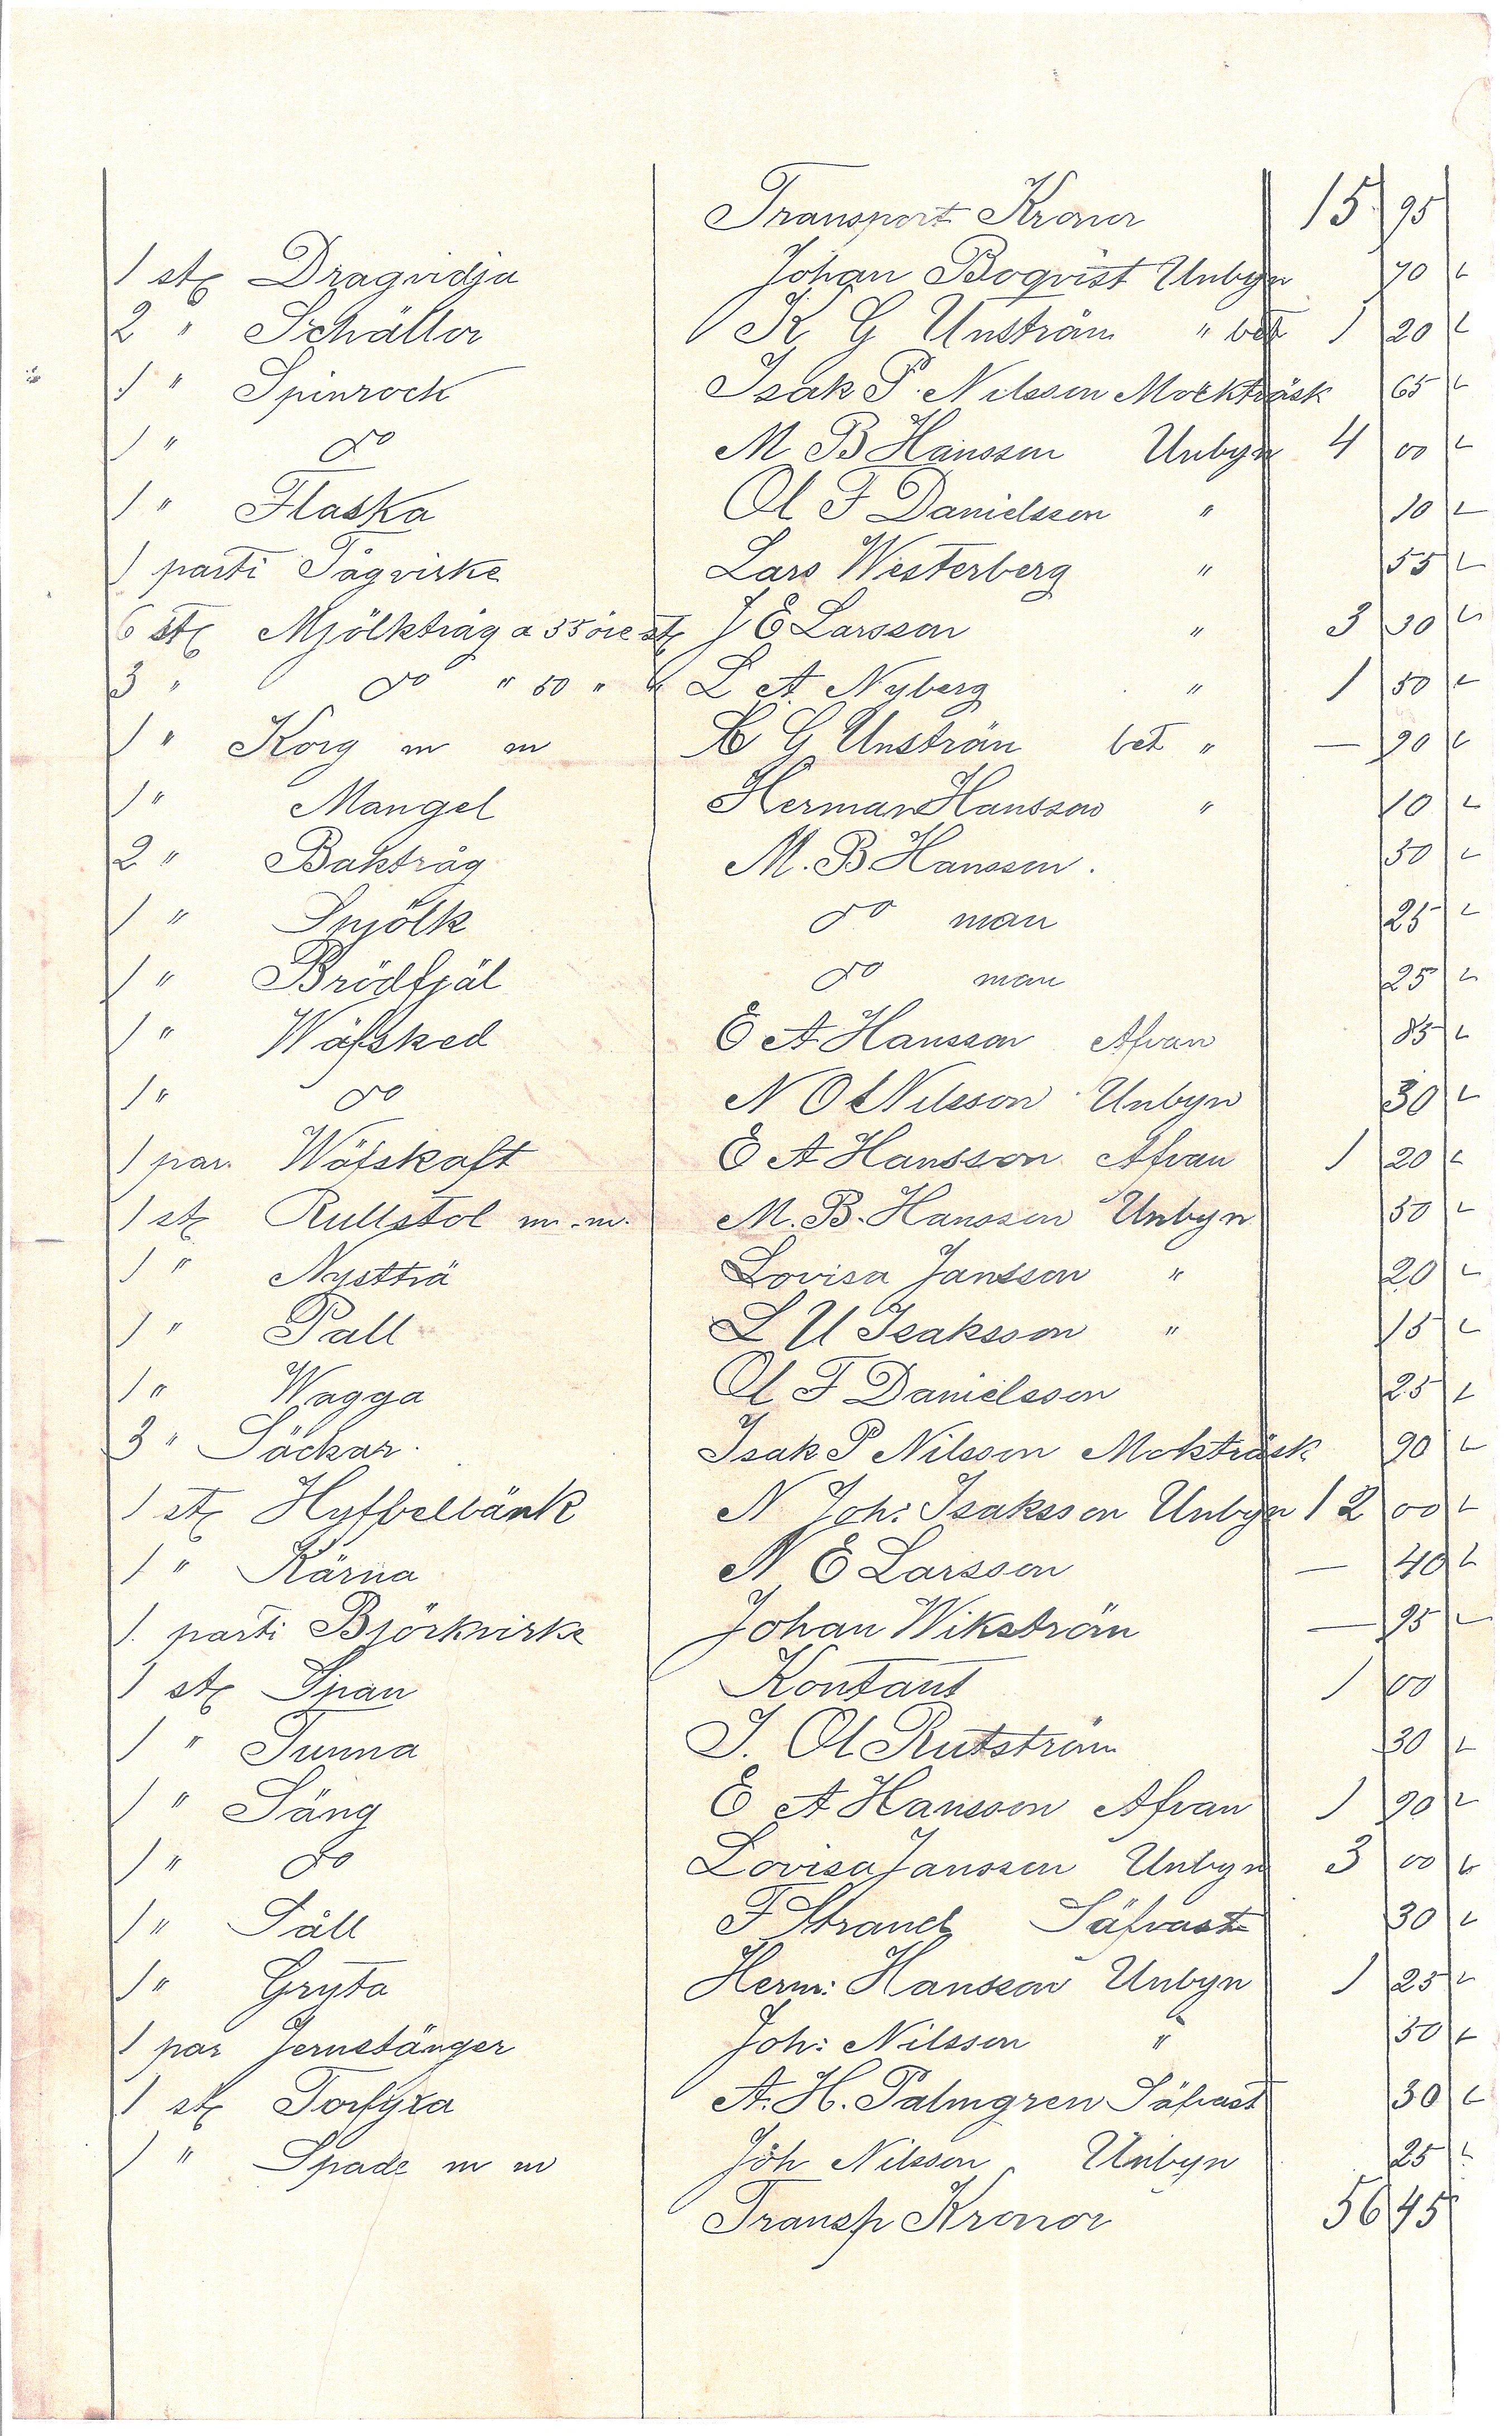 Transport Kronor 15 95
1 st Dragvidja Johan Boqvist Unbyn 70
2 " Schällor K G Unström " bet 1 20
1 " Spinrock Isak P. Nilsson Mockträsk 65
1 " do M B Hansson Unbyn 4 00
1 " Flaska Ol F Danielsson " 10
1 parti Tågvirke Lars Westerberg " 55
6 st Mjölktråg a 55 öre st J E Larsson " 3 30
3 " do " 50 " " L A Nyberg " 1 50
1 " Korg m m K G Unström bet " — 90
1 " Mangel Herman Hansson " 10
2 " Baktråg M. B Hansson. 50
1 " Smjölk do man 25
1 " Brödfjäl do man 25
1 " Wäfsked E A Hansson Afvan 85
1 " do N O Nilsson Unbyn 30
1 par. Wäfskaft E A Hansson Afvan 1 20
1 st Rullstol m.m. M. B. Hansson Unbyn 50
1 " Nystträ Lovisa Jansson " 20
1 " Pall L U Isaksson " 15
1 " Wagga Ol F Danielsson 25
3 " Säckar. Isak P Nilsson Mokträsk 90
1 st Hyfvelbänk N Joh: Isaksson Unbyn 12 00
1 " Kärna N E Larsson — 40
1. parti Björkvirke Johan Wikström — 95
1 st Span Kontant 1 00
1 " Tunna J. Ol Rutström 30
1 " Säng E A Hansson Afvan 1 90
1 " do Lovisa Jansson Unbyn 3 00
1 " Såll F Strand Säfvast 30
1 " Gryta Herm: Hansson Unbyn 1 25
1 par Jernstänger Joh: Nilsson " 50
1 st Torfyxa A. H. Palmgren Säfvast 30
1 " Spade m m Joh Nilsson Unbyn 25
Transp Kronor 56 45